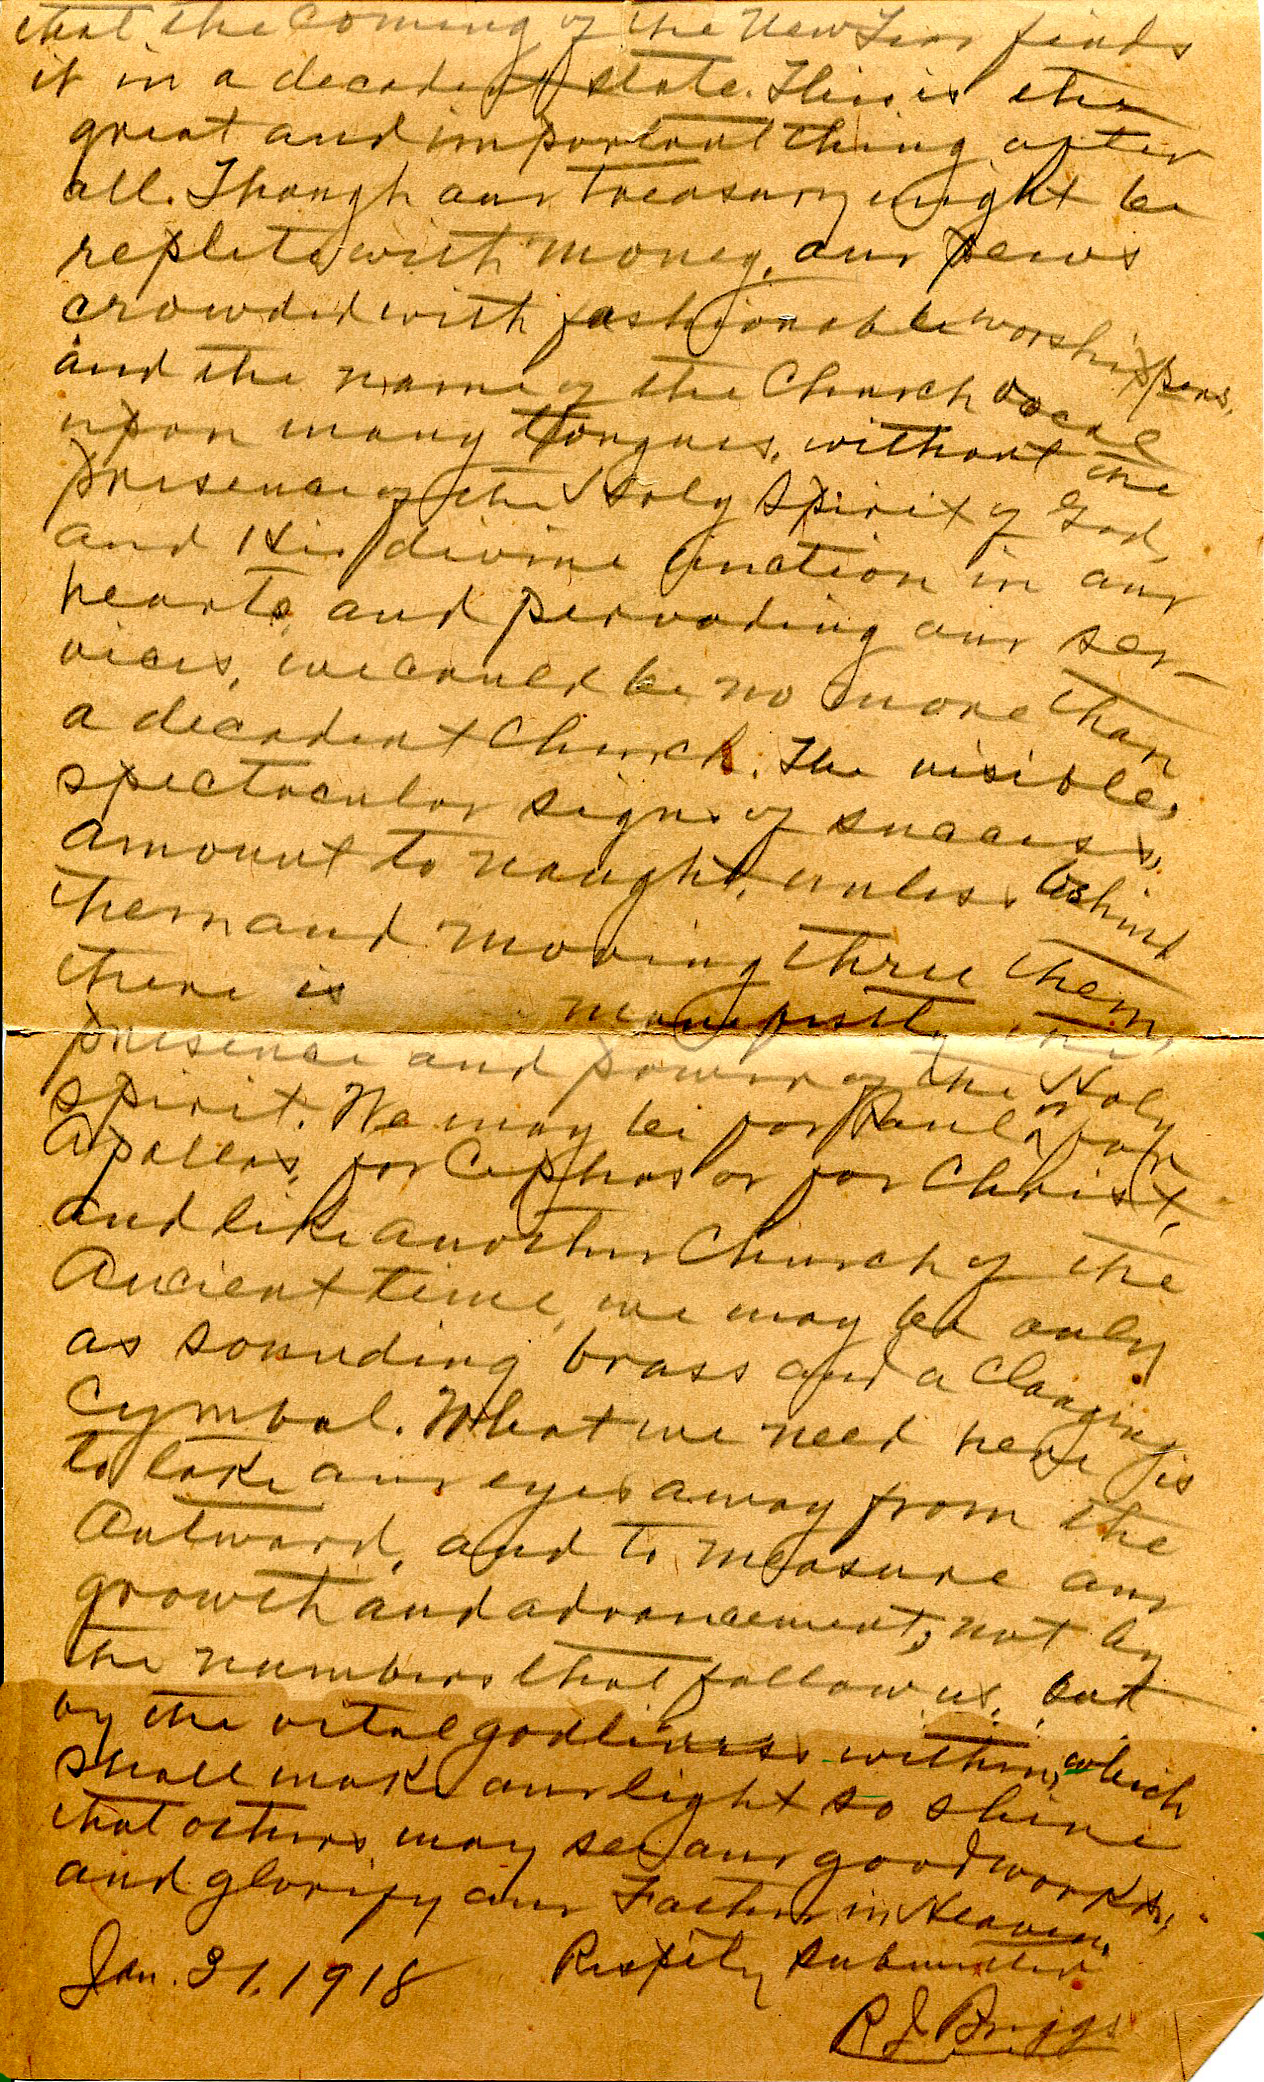 that the coming of the New Year finds
it in a decadent state. This is the
great and important thing after
all. Though our treasury might be
replete with money, our pews
crowded with fashionable worshippers,
and the name of the Church vocal
upon many tongues, without the
presence of the Holy Spirit of God,
and His divine unction in our
hearts, and pervading our ser-
vices, we could be no more than
a decadent Church. The visible,
spectacular signs of success,
amount to naught, unless behind
them and moving thru them,
there is manifestly the
presence and power of the Holy
spirit. We may be for Paul or for
Apollos, for Cephas or for Christ,
and like another Church of the
Ancient time, we may be only
as sounding brass and a clanging
Cymbal. What we need here is
to take our eyes away from the
Outward, and to measure our
growth and advancement, not by
the numbers that follow us, but
by the vital godliness within, which
shall make our light so shine
that others may see our good works,
and glorify our Father in Heaven.
Jan. 31, 1918 Respctly submitted
R J Briggs